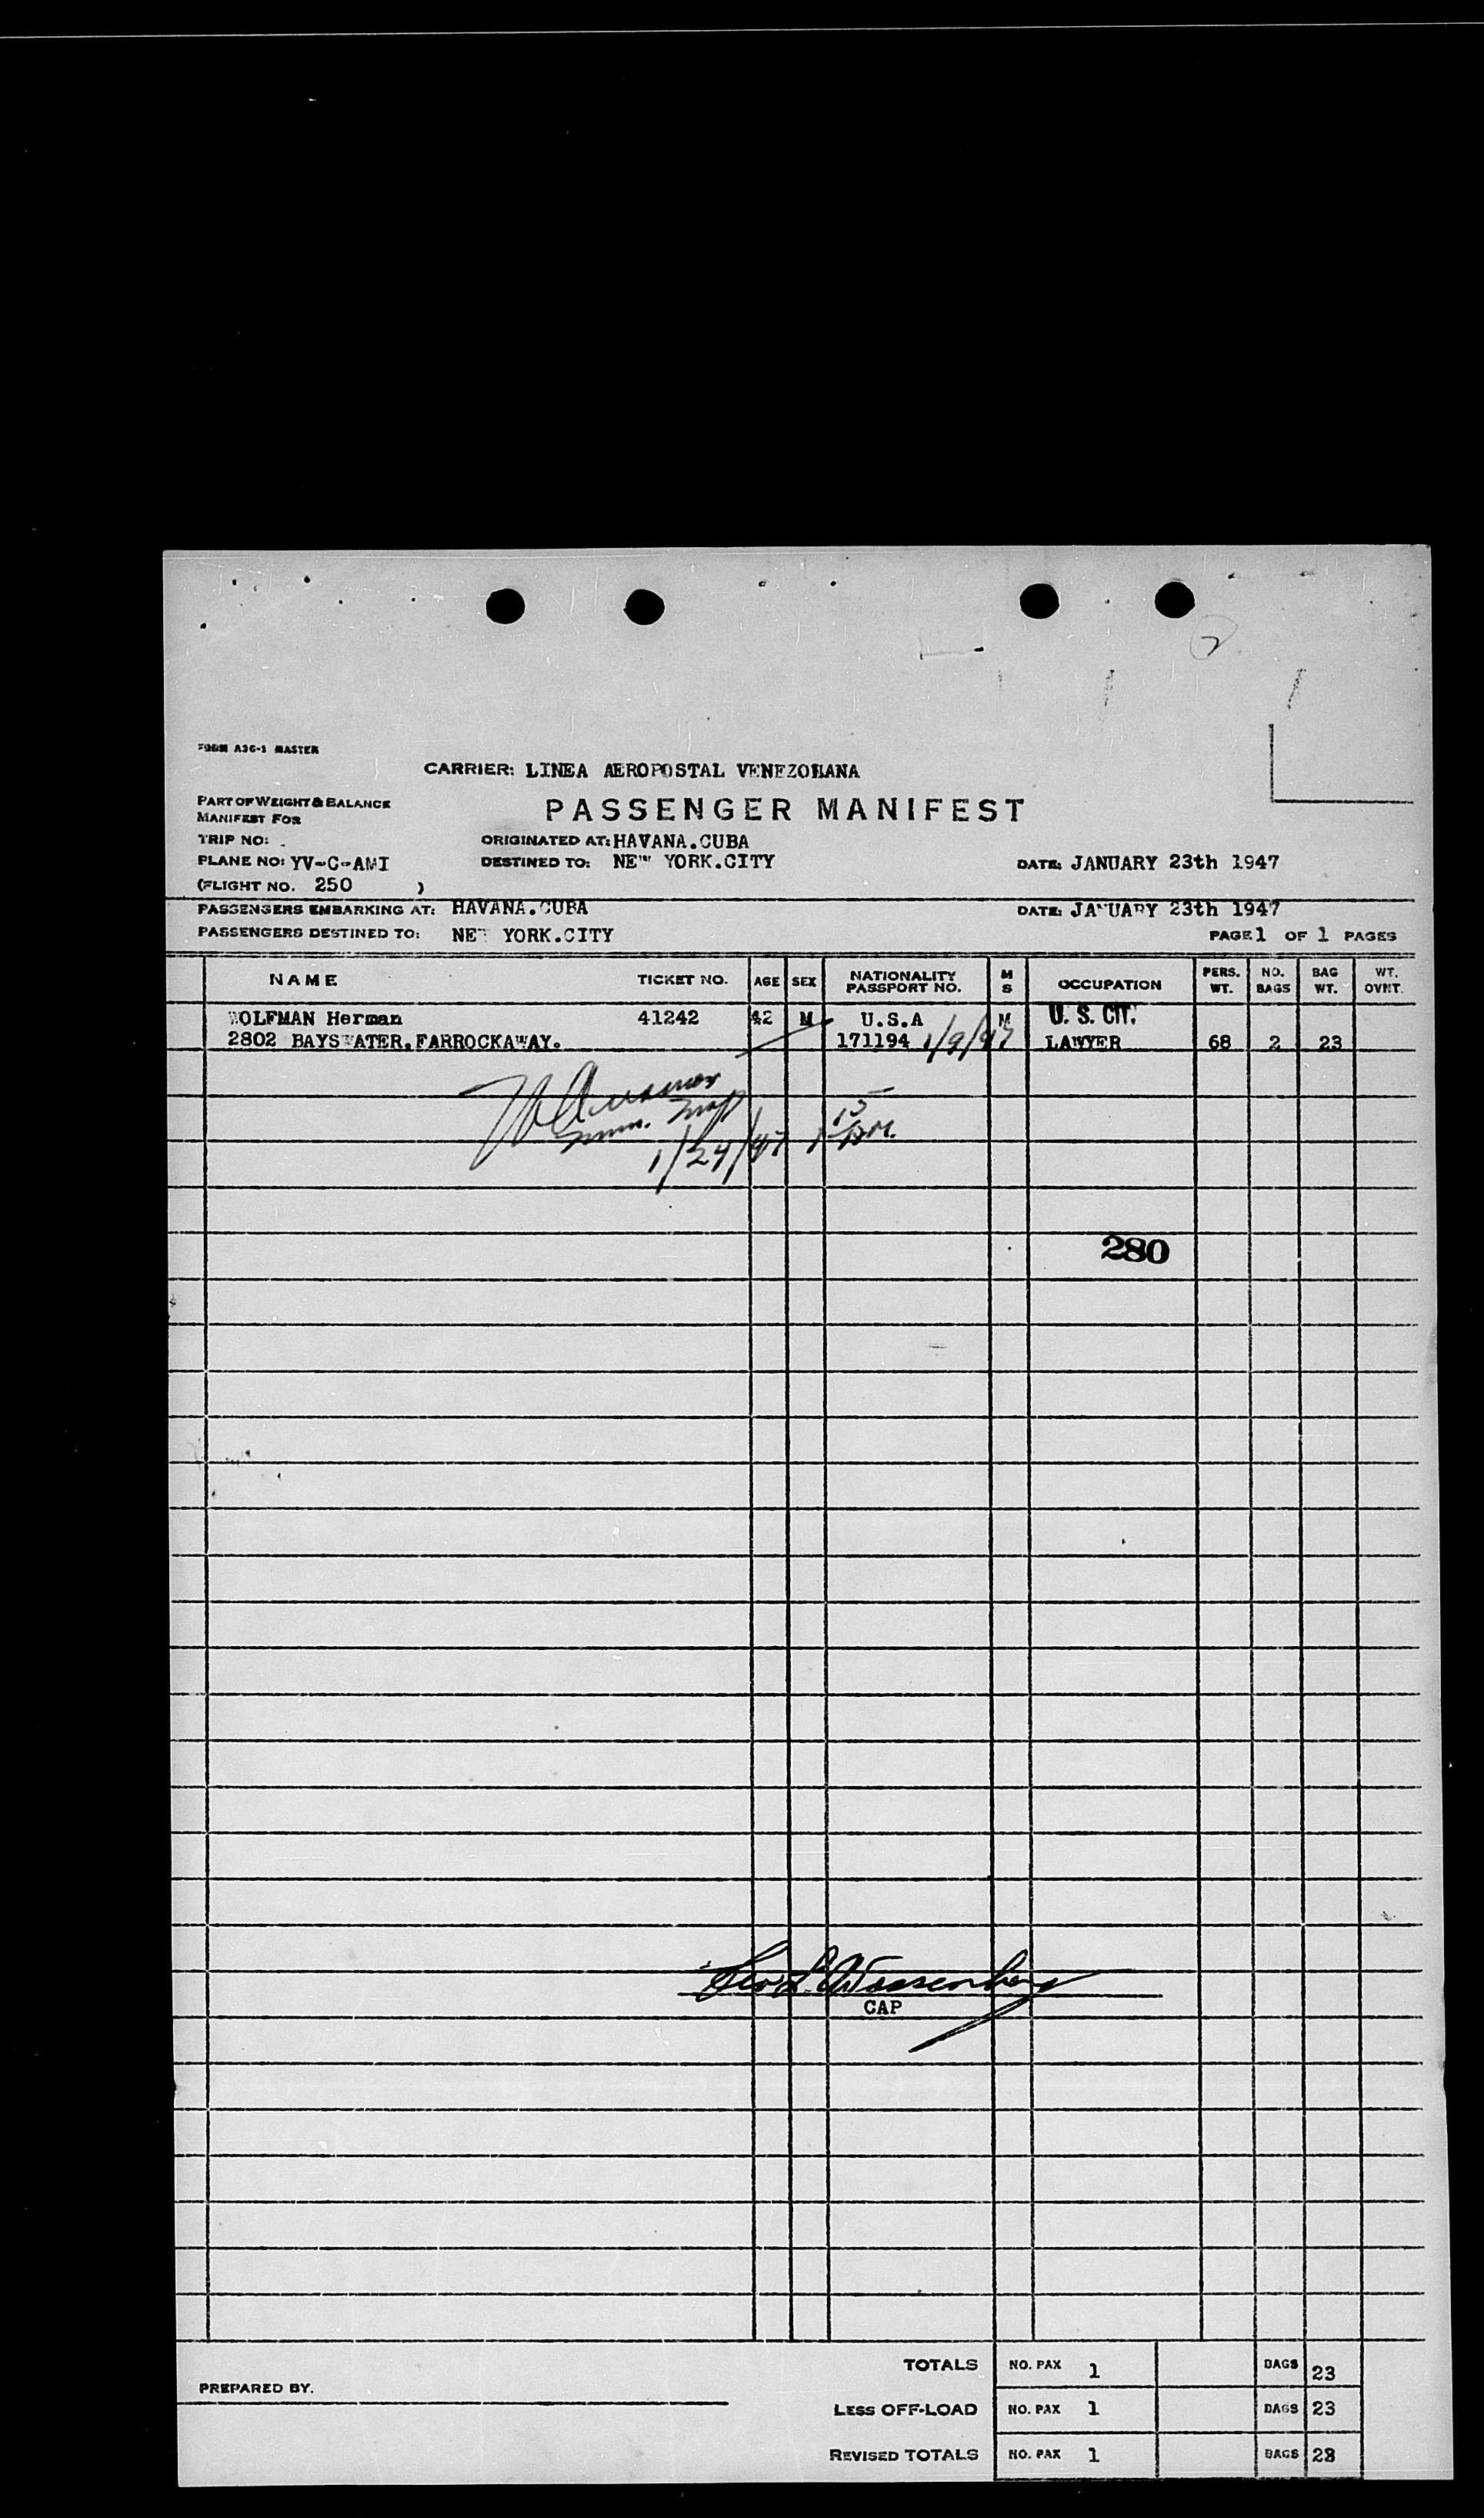 FORM A36-1 MASTER
CARRIER: LINEA AEROPOSTAL VENEZOLANA
PART OF WEIGHT & BALANCE
MANIFEST FOR
PASSENGER MANIFEST
TRIP NO: ORIGINATED AT: HAVANA.CUBA
PLANE NO: YV-C-AMI DESTINED TO: NEW YORK.CITY DATE: JANUARY 23th 1947
(FLIGHT NO. 250 )
PASSENGERS EMBARKING AT: HAVANA.CUBA DATE: JANUARY 23th 1947
PASSENGERS DESTINED TO: NEW YORK.CITY PAGE 1 OF 1 PAGES
NAME TICKET NO. AGE SEX NATIONALITY PASSPORT NO. M S OCCUPATION PERS. WT. NO. BAGS BAG WT. WT. OVNT.
WOLFMAN Herman 41242 42 M U.S.A M U. S. CIT.
2802 BAYSWATER.FARROCKAWAY. 171194 1/9/47 LAWYER 68 2 23
Imm. Insp
1/24/47 1 15 P.M.
280
CAP
TOTALS NO. PAX 1 BAGS 23
PREPARED BY.
LESS OFF-LOAD NO. PAX 1 BAGS 23
REVISED TOTALS NO. PAX 1 BAGS 23